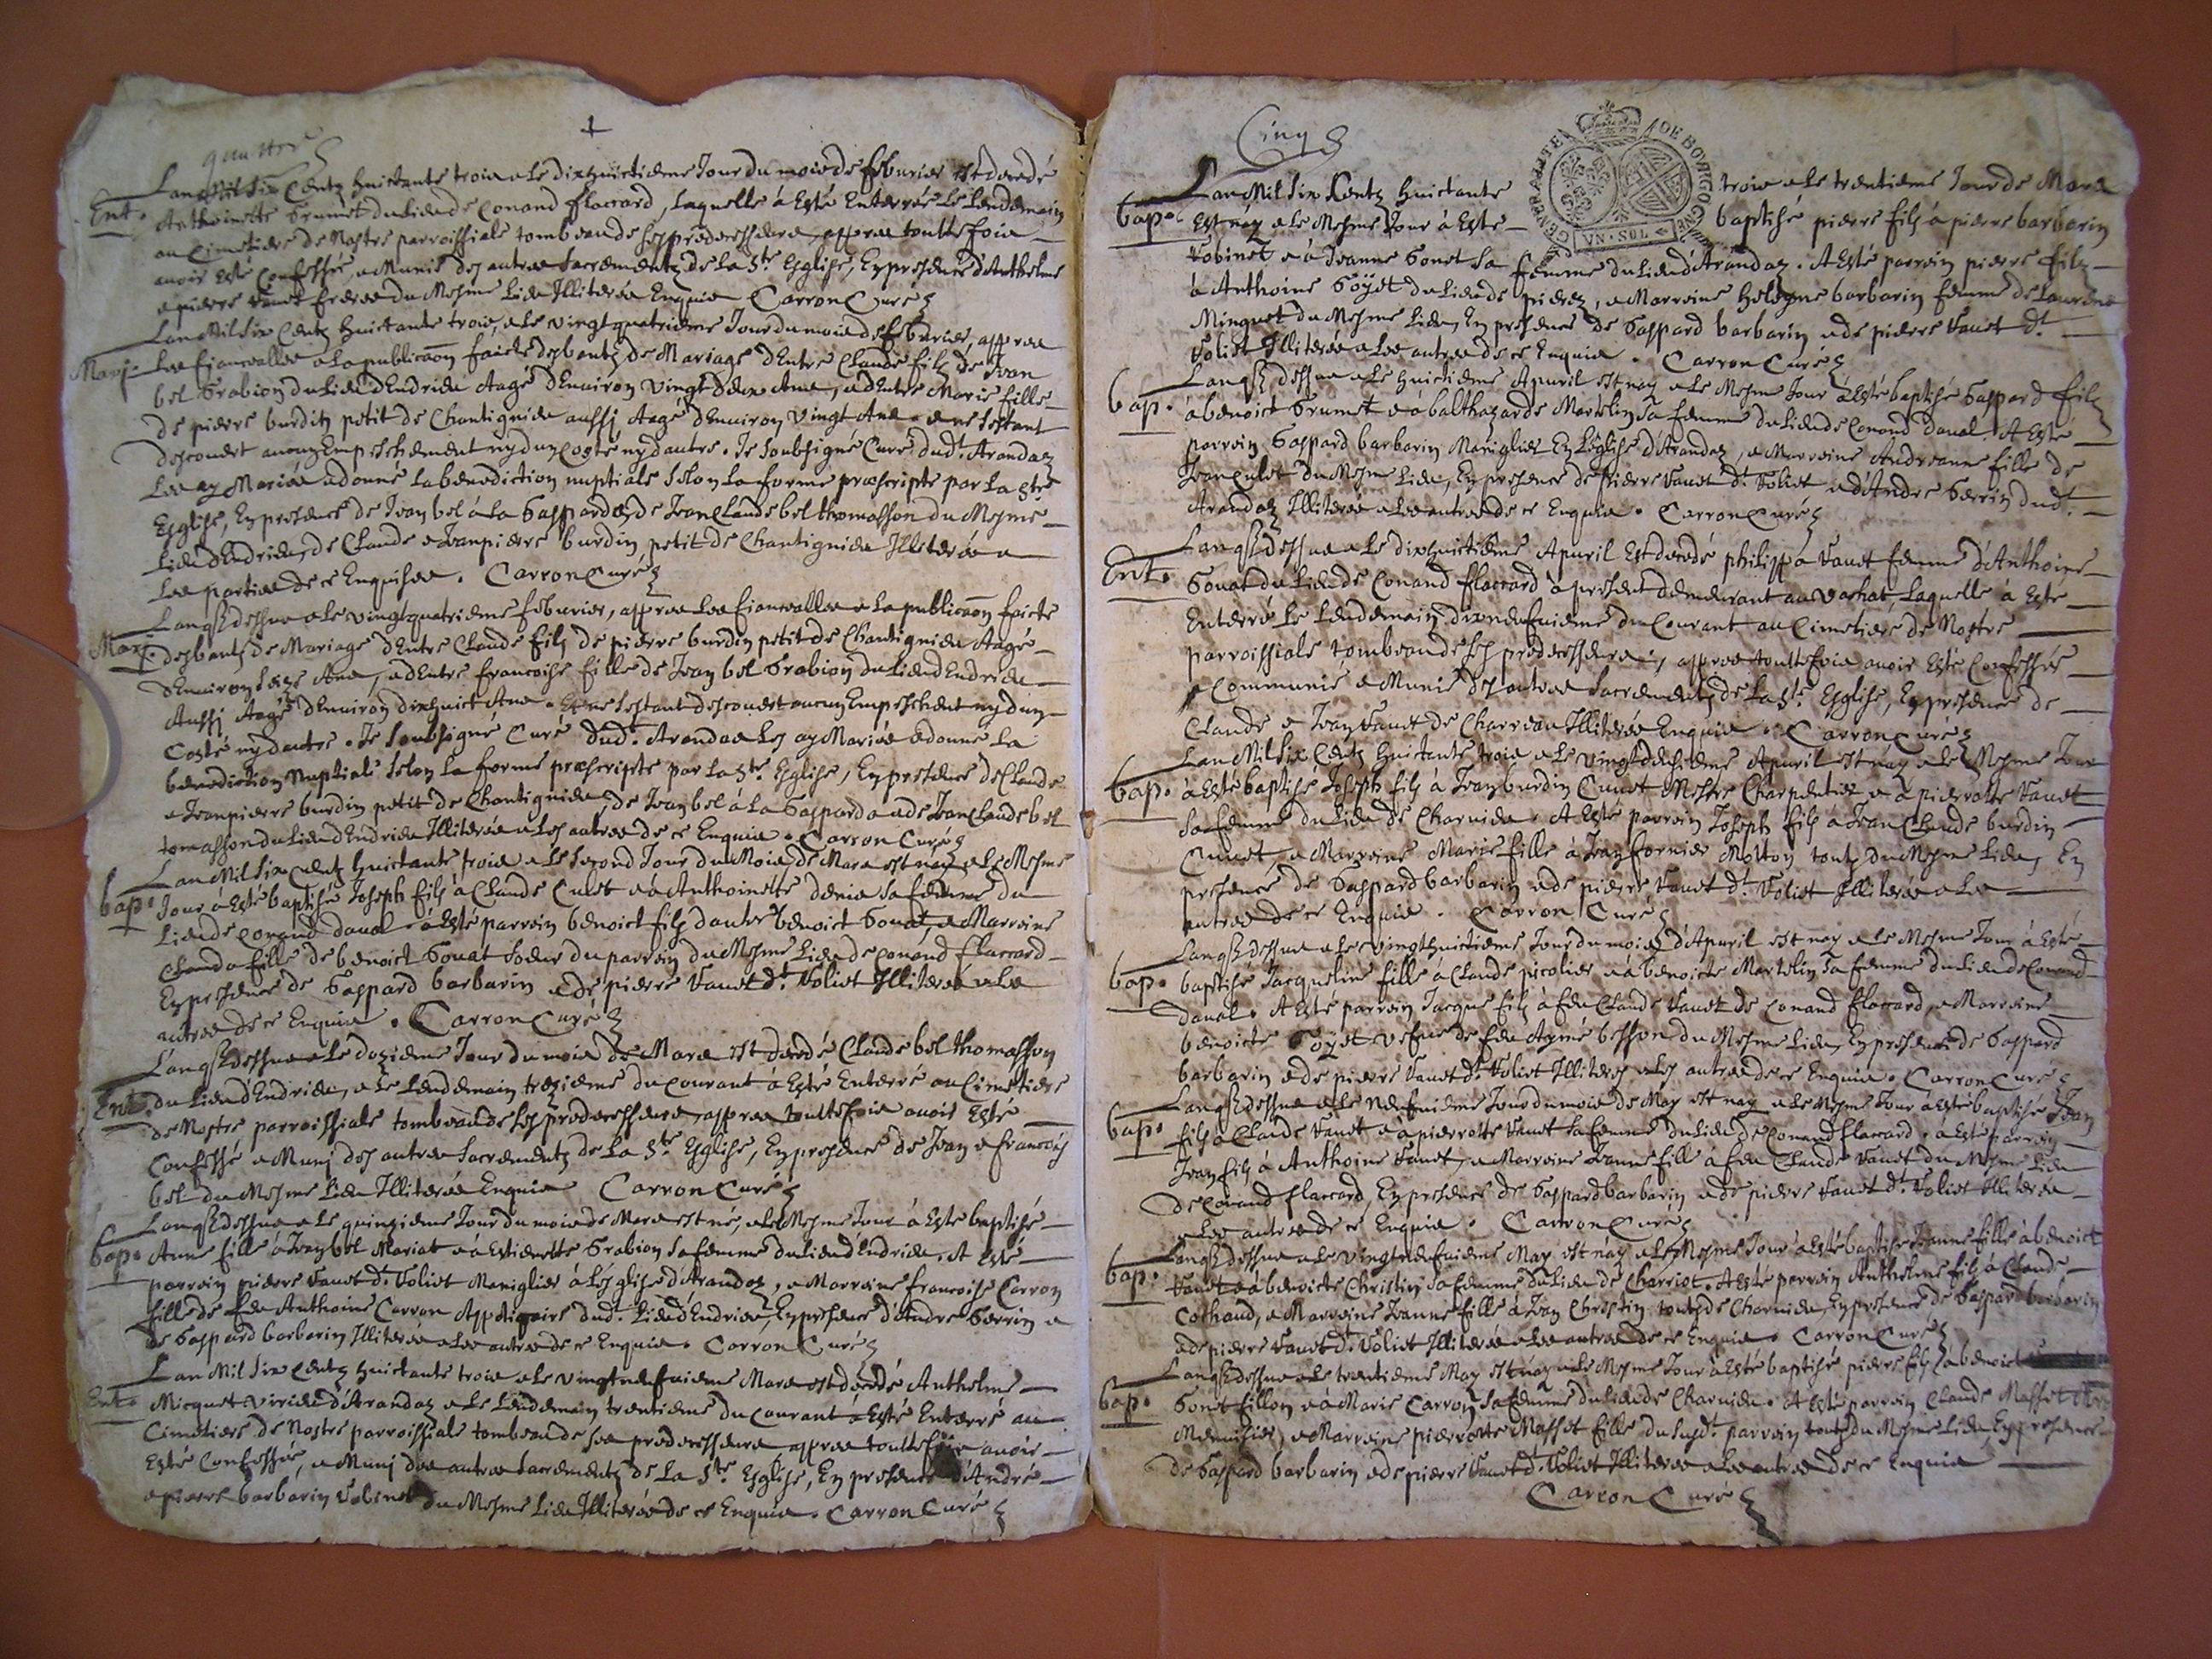 quattre
Ent. Lan Mil Six Centz huictante trois & le dixhuictiesme Jour du mois de feburier est decedé
Anthoinette Brunet du lieu de Conand flaccard, laquelle à Esté Enterrée le lendemain
au Cimetiere de Nostre parroissiale tombeau de ses predecesseurs, appres touttefois
avoir Esté Confessée, & Munie des autres Sacrements de la Ste Esglise, En presence d'Anthelme
& pierre freres du Mesme lieu Illiterés Enquis Carron Curé
Marj. Lan Mil Six Centz huictante trois, & le vingtquatrieme Jour du mois de feburier, appres
les fiancailles & la publicaon faicte des bantz de Mariage d'Entre Claude filz de Jean
bel Grabion du lieu d'Endrieu Aagé d'Environ vingt deux Ans, & d'Entre Marie fille
de pierre burdin petit de Chantignieu aussj Aagé d'Environ vingt Ans & ne sestant
descouvert aucun Empeschement ny d'un Costé ny d'autre. Je Soubsigné Curé dudt. Arandaz
les ay Mariés & donné la benediction nuptiale selon la forme prescripte par la Ste
Esglise, En presence de Jean bel à la Gasparde, de Jean Claude bel thomasson du Mesme
lieu d'Endrieu, de Claude & Jeanpierre burdin petit de Chantignieu Illiterés &
les parties de ce Enquises. Carron Curé
Marj. Lan que dessus & le vingtquatrieme feburier, appres les fiancailles & la publicaon faicte
des bantz de Mariage d'Entre Claude filz de pierre burdin petit de Chantignieu Aagé
d'Environ Ans, & d'Entre francoise fille de Jean bel Grabion du lieu d'Endrieu
Aussj Aagé d'Environ dixhuict Ans. Et ne sestant descouvert aucun Empeschement ny d'un
Costé ny d'autre. Je Soubsigné Curé dudt. Arandas les ay Mariés & donné la
benediction Nuptiale selon la forme prescripte par la Ste. Esglise, En presence de Claude
& Jeanpierre burdin petit de Chantignieu, de Jean bel à la Gasparda & de Jean Claude bel
tomasson du lieu d'Endrieu Illiterés & les autres de ce Enquis. Carron Curé
bap. Lan Mil Six Centz huictante trois & le Second Jour du Mois de Mars est nay & le Mesme
Jour à Esté baptisé Joseph filz à Claude Culet & à Anthoinette sa femme du
lieu de Conand daval. à Esté parrein benoict filz d'autre benoict Gonat, & Marreine
Clauda fille de benoict Gonat Soeur du parrein du Mesme lieu de Conand flaccard
En presence de Gaspard barbarin & de pierre Vauet dt. Voliet Illiterés & les
autres de ce Enquis. Carron Curé
Ent. Lan que dessus & le doziéme Jour du mois de Mars est decedé Claude bel thomasson
du lieu d'Endrieu, & le lendemain treziéme du courant à Esté Enterré au Cimetiere
de Nostre parroissiale tombeau de ses predecesseurs, appres touttefois avoir Esté
Confessé & Munj des autres Sacrements de la Ste Esglise, En presence de Jean & francois
bel du Mesme lieu Illiterés Enquis Carron Curé
bap. Lan que dessus & le quinziéme Jour du mois de Mars est né, & le Mesme Jour à Esté baptisé
Anne fille à Jean bel Mariat & à Estiennette Grabion sa femme du lieu d'Endrieu. A Esté
parrein pierre Vauet dt. Voliet Maniglier à l'Esglise d'Arandaz, & Marreine francoise Carron
fille de feu Anthoine Carron Appotiqaire dud. lieu d'Endrieu, En presence d'André Gerrin &
de Gaspard barbarin Illiterés & les autres de ce Enquis. Carron Curé
Ent. Lan Mil Six Centz huictante trois & le vingtneufuiéme Mars est decedé Anthelme
Micquet d'Arandaz & le lendemain trentiéme du Courant à Esté Enterré au
Cimetiere de Nostre parroissiale tombeau de ses predecesseurs appres touttefois avoir
Esté Confessée, & Munj des autres Sacrements de la Ste Esglise, En presence d'André
& pierre barbarin Vobinet du Mesme lieu Illiterés de ce Enquis. Carron Curé
Cinq
GENERALITE DE BOURGOGNE
VN·SOL
bap. Lan Mil Six Centz huictante trois & le trentiéme Jour de Mars
Est nay & le Mesme Jour à Esté baptisé pierre filz à pierre barbarin
Vobinet & à Jeanne Gonet sa femme du lieu d'Arandaz. A Esté parrein pierre filz
à Anthoine Goÿet du lieu de & Marreine barbarin femme de Laurent
Minguet du Mesme lieu, En presence de Gaspard barbarin & de pierre Vauet dt.
Voliet Illiterés & les autres de ce Enquis. Carron Curé
bap. Lan que dessus & le huictiéme Apuril est nay & le Mesme Jour à Esté baptisé Gaspard filz
à benoict Brunet & à balthazarde Martelin sa femme du lieu de Conand daval. A Esté
parrein Gaspard barbarin Maniglier En l'Esglise d'Arandaz, & Marreine Andreanne fille de
Jean Culet du Mesme lieu, En presence de pierre Vauet dt. Voliet & d'André Gerrin dudt.
Arandaz Illiterés & les autres de ce Enquis. Carron Curé
Ent. Lan que dessus & le dixhuictiéme Apuril Est decedé philippa Vauet femme d'Anthoine
Gonat du lieu de Conand flaccard à present demeurant au laquelle à Esté
Enterré le lendemain dixneufuiéme du Courant au Cimetiere de Nostre
parroissiale tombeau de ses predecesseurs, appres touttefois avoir Esté Confessée
Communié & Munie des autres Sacrements de la Ste. Esglise, En presence de
Claude & Jean Vauet de Charvieu Illiterés Enquis. Carron Curé
bap. Lan Mil Six Centz huictante trois & le vingtdeusiéme Apuril est nay & le Mesme Jour
à Esté baptisé Joseph filz à Jean burdin Cunet Mestre Charpentier & à pierrotte Vauet
sa femme du lieu de Charvieu. A Esté parrein Joseph filz à Jean Claude burdin
Cunet, & Marreine Marie fille à Jean fornier Motton touts du Mesme lieu, En
presence de Gaspard barbarin & de pierre Vauet dt. Voliet Illiterés & les
autres de ce Enquis. Carron Curé
bap. Lan que dessus & le vingthuictiéme Jour du mois d'Apuril est nay & le Mesme Jour à Esté
baptisé Jacqueline fille à Claude picolier & à benoicte Martelin sa femme du lieu de Conand
daval. A Esté parrein Jacque filz à feu Claude Vauet de Conand flaccard, & Marreine
benoicte Goÿet vefue de feu Aymé besson du Mesme lieu, En presence de Gaspard
barbarin & de pierre Vauet dt. Voliet Illiteres & les autres de ce Enquis. Carron Curé
bap. Lan que dessus & le Neufuiéme Jour du mois de May est nay & le Mesme Jour à Esté baptisé Jean
filz à Claude Vauet & à pierrotte Vauet sa femme du lieu de Conand flaccard. à Esté parrein
Jean filz à Anthoine Vauet, & Marreine Jeanne fille à feu Claude Vauet du Mesme lieu
de Conand flaccard, En presence de Gaspard barbarin & de pierre Vauet dt. Voliet Illiterés
& les autres de ce Enquis. Carron Curé
bap. Lan que dessus & le vingtneufuiéme May est nay & le Mesme Jour à Esté baptisé Jeanne fille à benoict
Vauet & à benoicte Christin sa femme du lieu de Charriot. A Esté parrein Anthelme filz à Claude
Cothaud, & Marreine Jeanne fille à Jean Christin touts de Charvieu, En presence de Gaspard barbarin
& de pierre Vauet dt. Voliet Illiterés & les autres de ce Enquis. Carron Curé
bap. Lan que dessus & le trentiéme May est nay & le Mesme Jour à Esté baptisé pierre filz à benoict
Gonet fillon & à Marie Carron sa femme du lieu de Charvieu. A Esté parrein Claude Masset
Menuisier, & Marreine pierrotte Masset fille du susdt. parrein touts du Mesme lieu, En presence
de Gaspard barbarin & de pierre Vauet dt. Voliet Illiterés & les autres de ce Enquis
Carron Curé